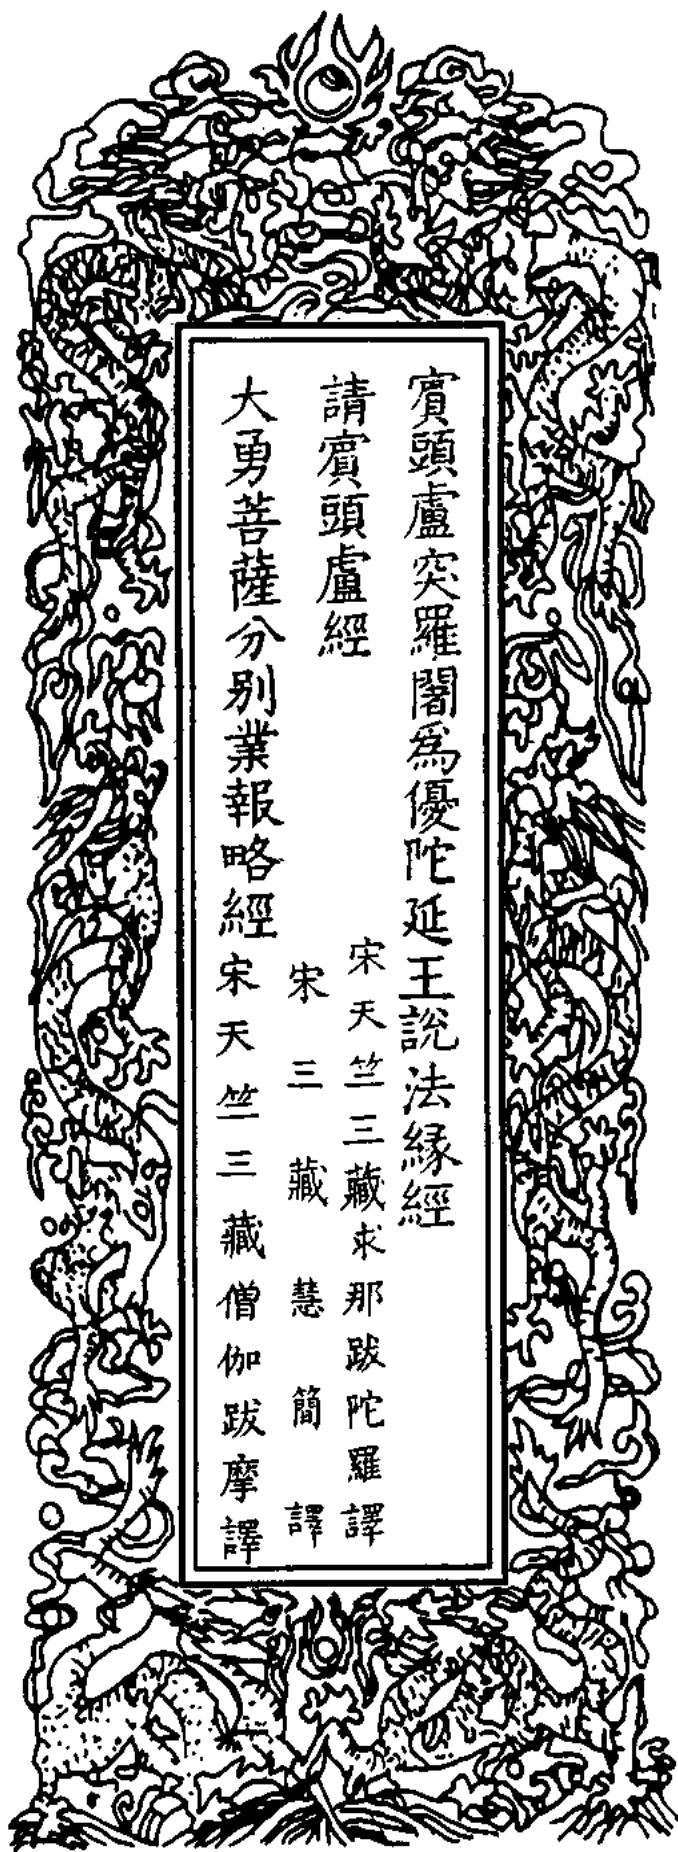 賓頭盧突羅闍爲優陀延王說法緣經
宋天竺三藏求那跋陀羅譯
請賓頭盧經
宋三藏慧簡譯
大勇菩薩分別業報略經
宋天竺三藏僧伽跋摩譯